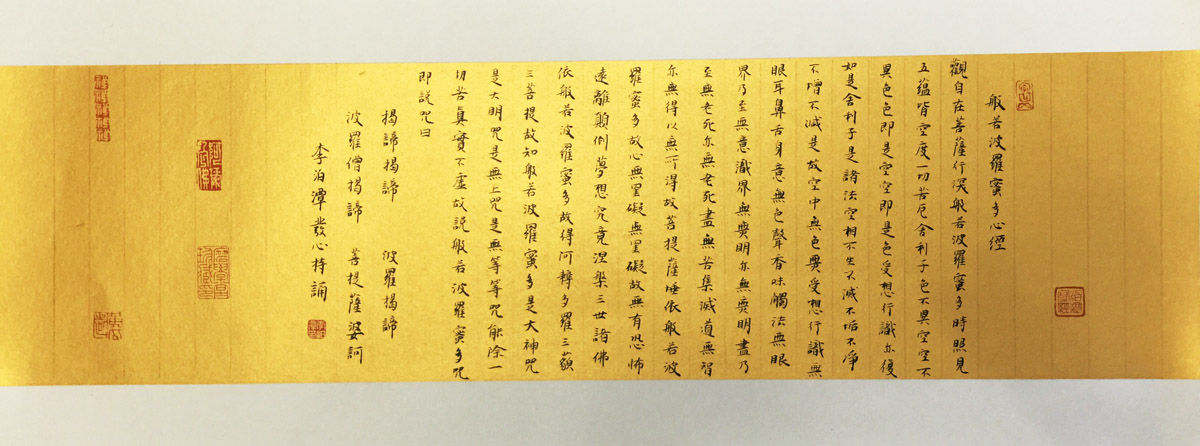 般若波羅蜜多心經
觀自在菩薩行深般若波羅蜜多時照見
五蘊皆空度一切苦厄舍利子色不異空空不
異色色即是空空即是色受想行識亦復
如是舍利子是諸法空相不生不滅不垢不淨
不增不減是故空中無色無受想行識無
眼耳鼻舌身意無色聲香味觸法無眼
界乃至無意識界無無明亦無無明盡乃
至無老死亦無老死盡無苦集滅道無智
亦無得以無所得故菩提薩埵依般若波
羅蜜多故心無罣礙無罣礙故無有恐怖
遠離顛倒夢想究竟涅槃三世諸佛
依般若波羅蜜多故得阿耨多羅三藐
三菩提故知般若波羅蜜多是大神咒
是大明咒是無上咒是無等等咒能除一
切苦真實不虛故説般若波羅蜜多咒
即説咒曰
揭諦揭諦　波羅揭諦
波羅僧揭諦　菩提薩婆訶
李泊潭發心持誦